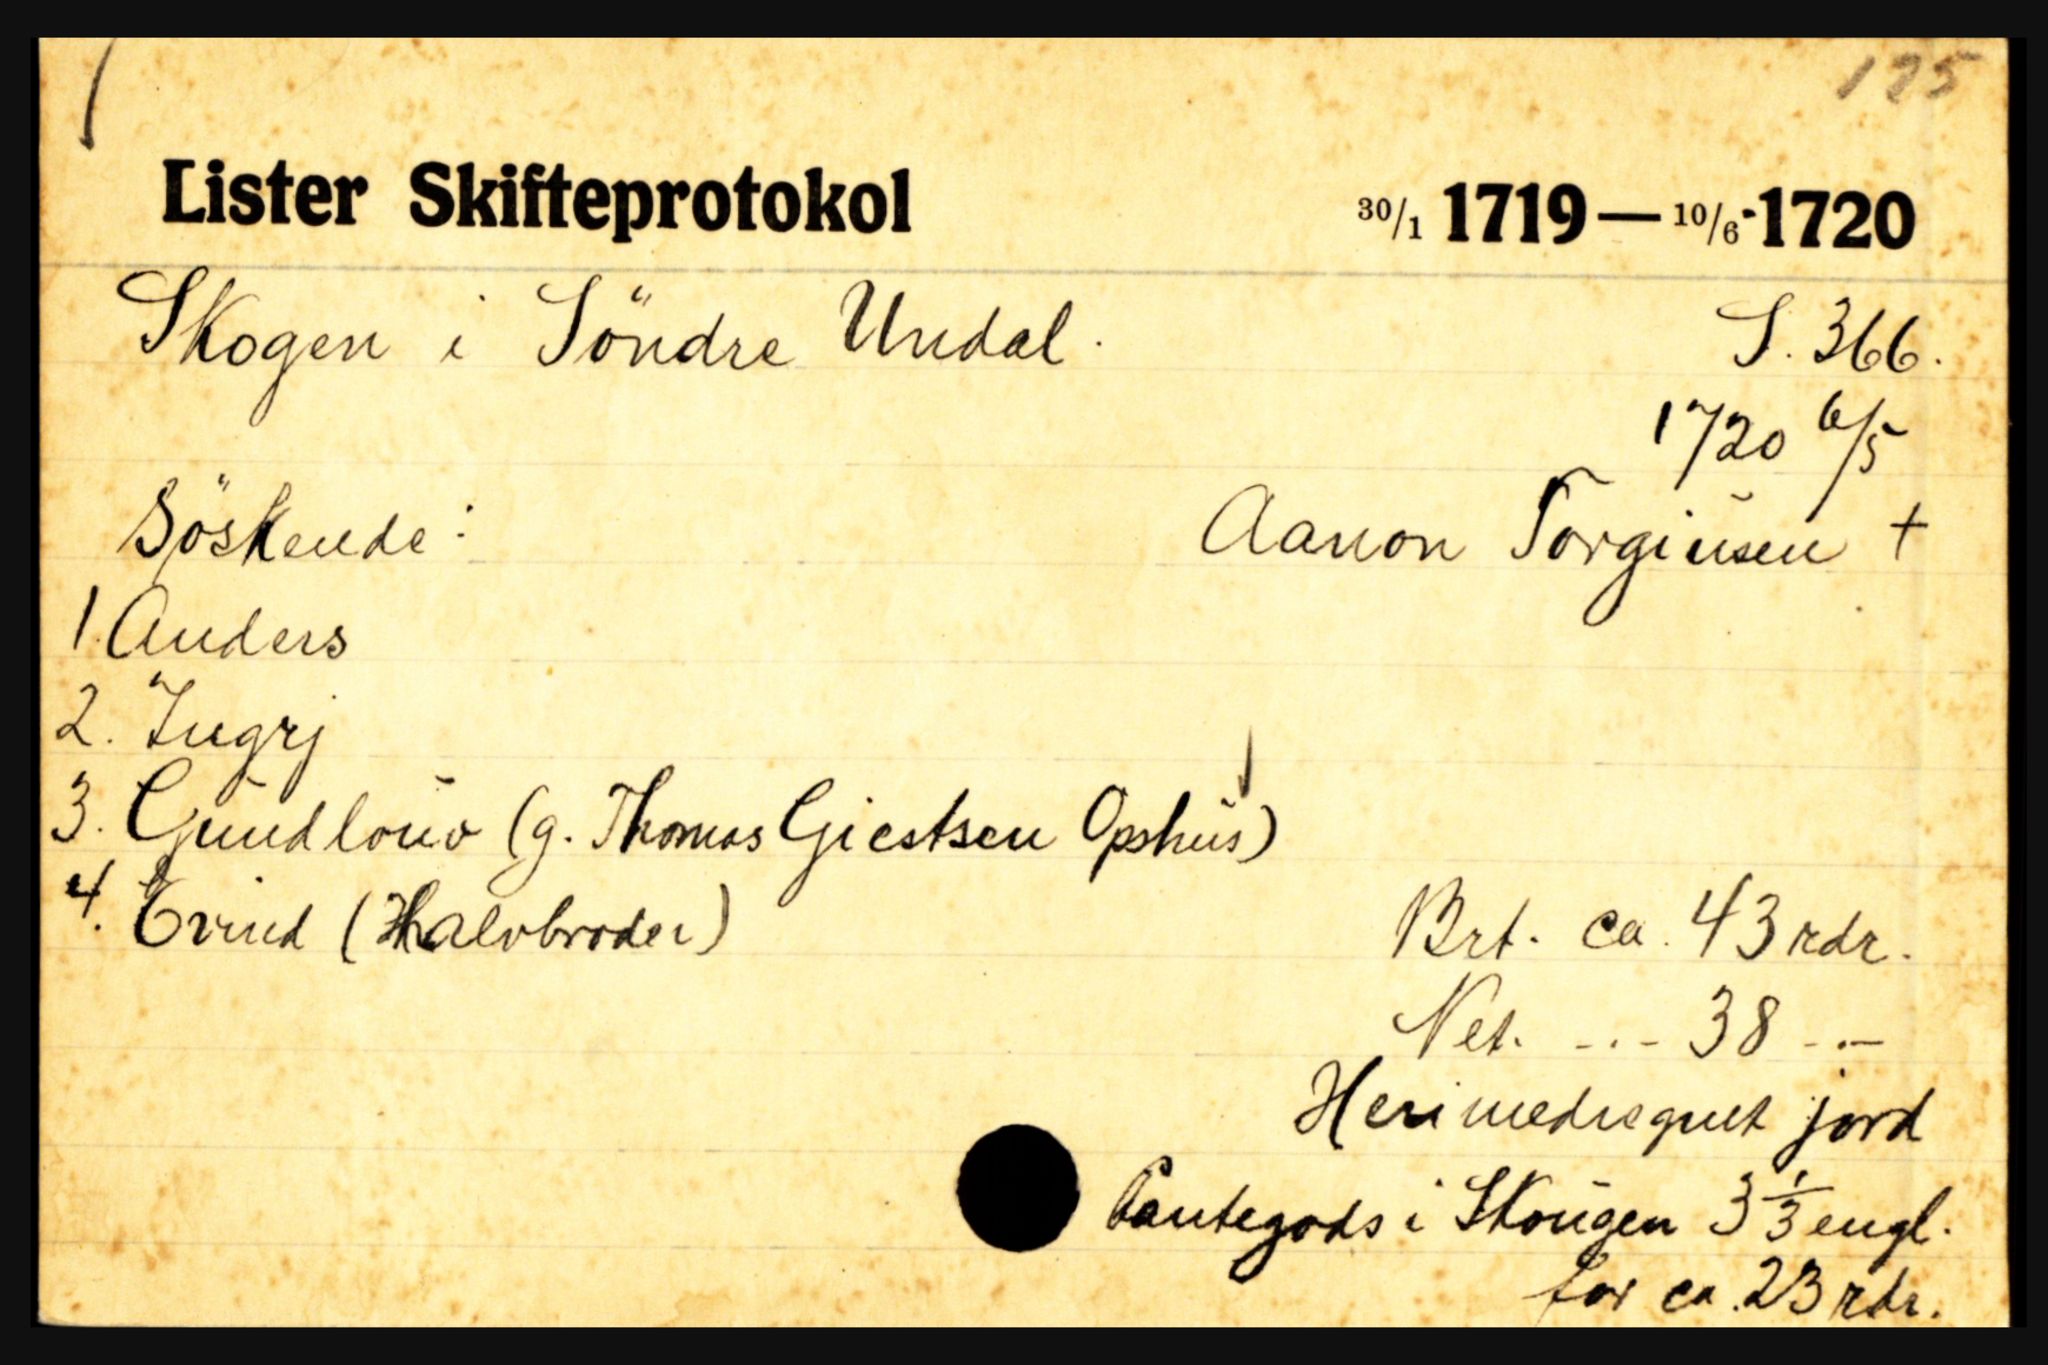 175
Lister Skifteprotokol 30/1 1719 — 10/6 - 1720
Skogen i Söndre Undal. S. 366.
1720 6/5
Söskende: Aanon Torgiusen +
1. Anders
2. Ingrj
3. Gundlouv (g. Thomas Giestsen Opshus)
4. Evind (Halvbroder)
Brt. ca. 43 rdr.
Net. -.- 38 -.-
Heri medregnet jord
Pantegods i Skougen 3 1/3 engl.
for ca. 23 rdr.